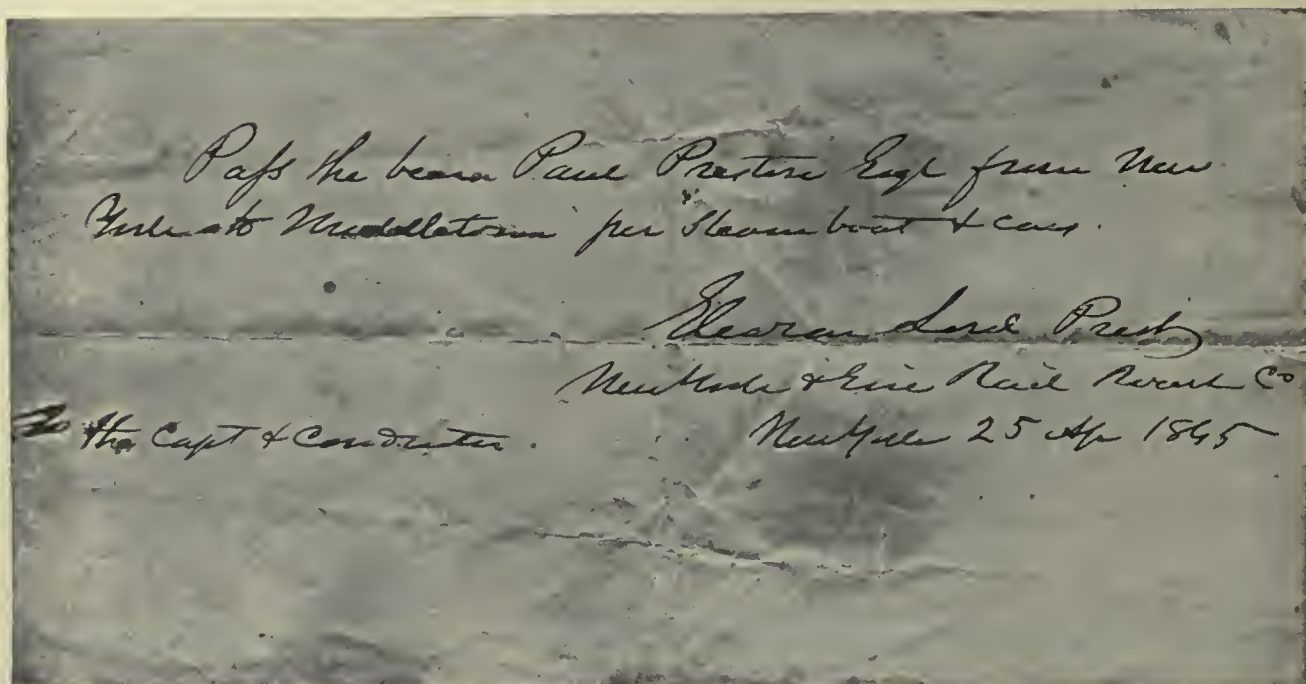 Pass the bearer Paul Preston Esqr from New
York to Middletown per steam boat & cars.
Eleazar Lord Prest
New York & Erie Rail Road Co
To the Capt & Conductor.
New York 25 Ap 1845